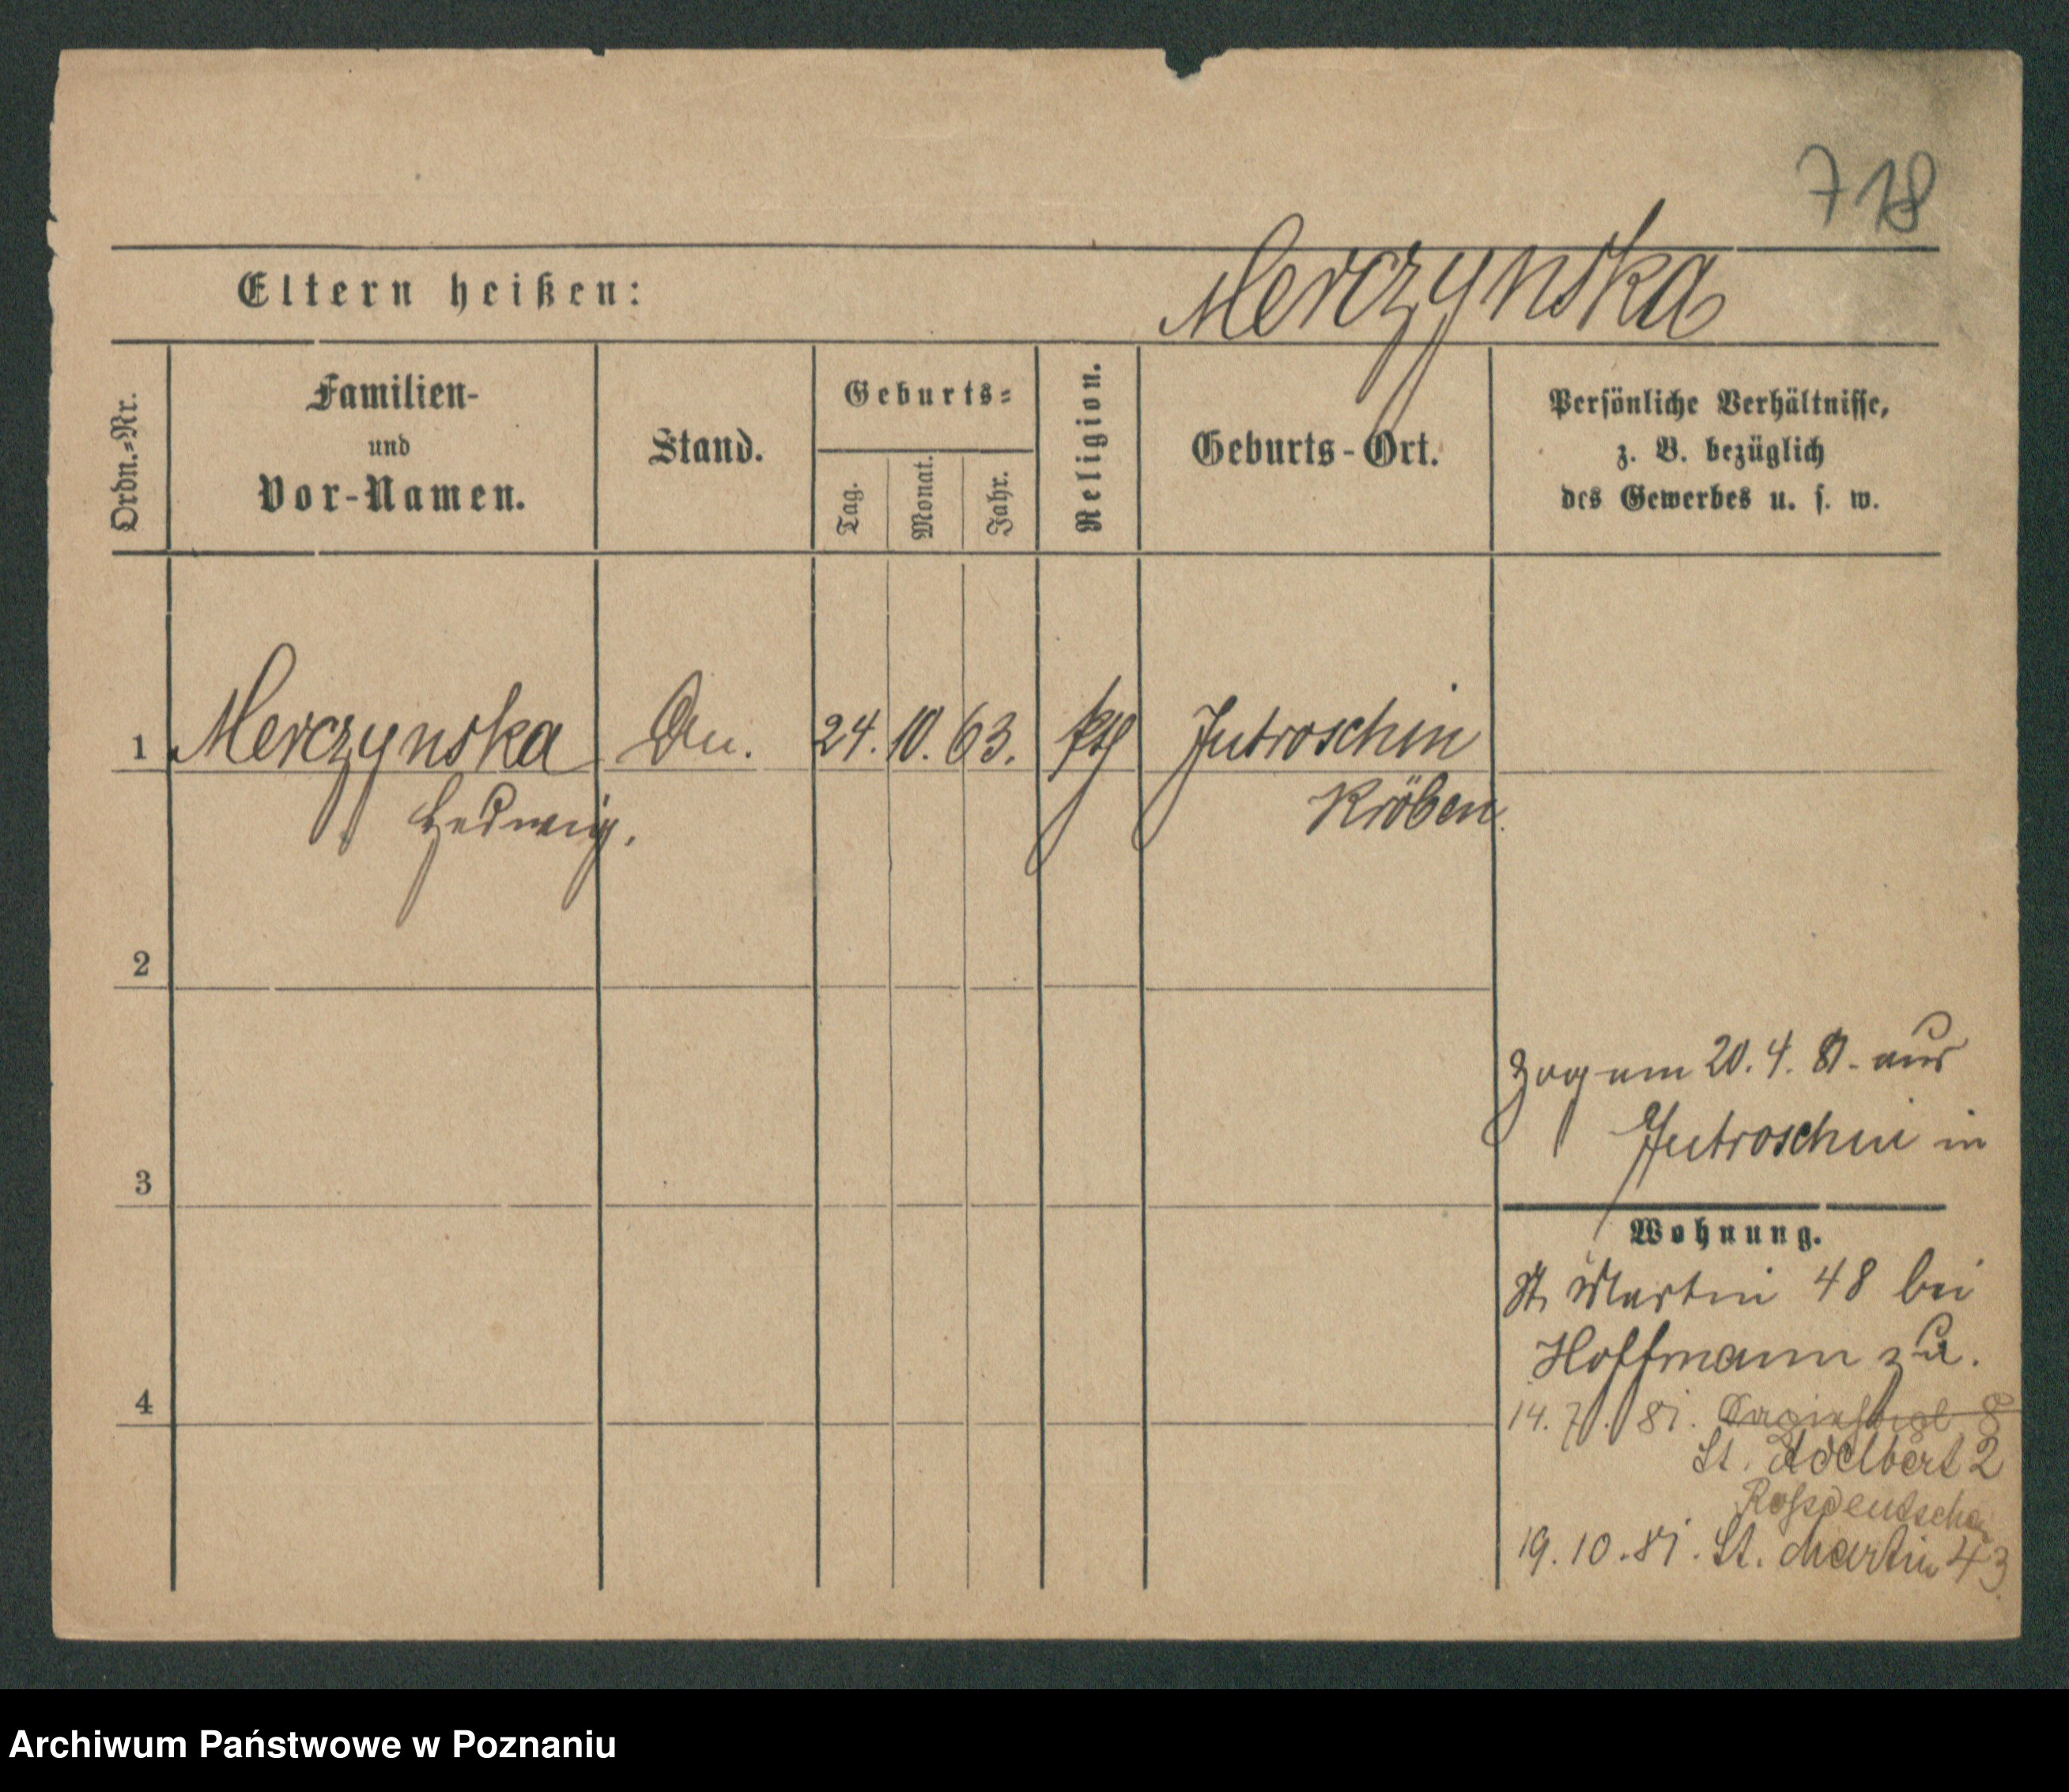 718
Eltern heißen:
Merczynska
Ordn.-Nr.
Familien-
und
Vor-Namen.
Stand.
Geburts-
Tag.
Monat.
Jahr.
Religion.
Geburts-Ort.
Persönliche Verhältnisse,
z. B. bezüglich
des Gewerbes u. s. w.
1 Merczynska 24. 10. 63. kth Jutroschin
Hedwig. Kröben.
2
3
4
Zog am 20. 4. 81. aus
Jutroschin in
Wohnung.
St. Martin 48 bei
Hoffmann zu.
14. 7. 81. 8
St. Adelbert 2
19. 10. 81. St. Martin 43
Archiwum Państwowe w Poznaniu